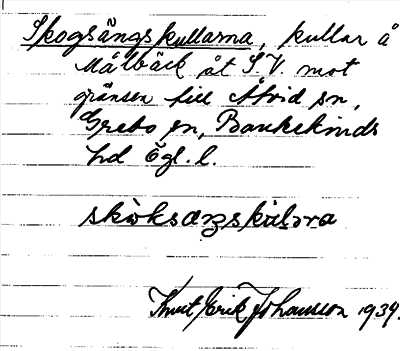 Skogsängskullarna, kullar å
Målbäck åt S.V. mot
gränsen till Åtvid sn,
Grebo sn, Bankekinds
hd Ögl. l.
skòksæŋskúl̥ɔra
Knut Erik Johansson 1934.